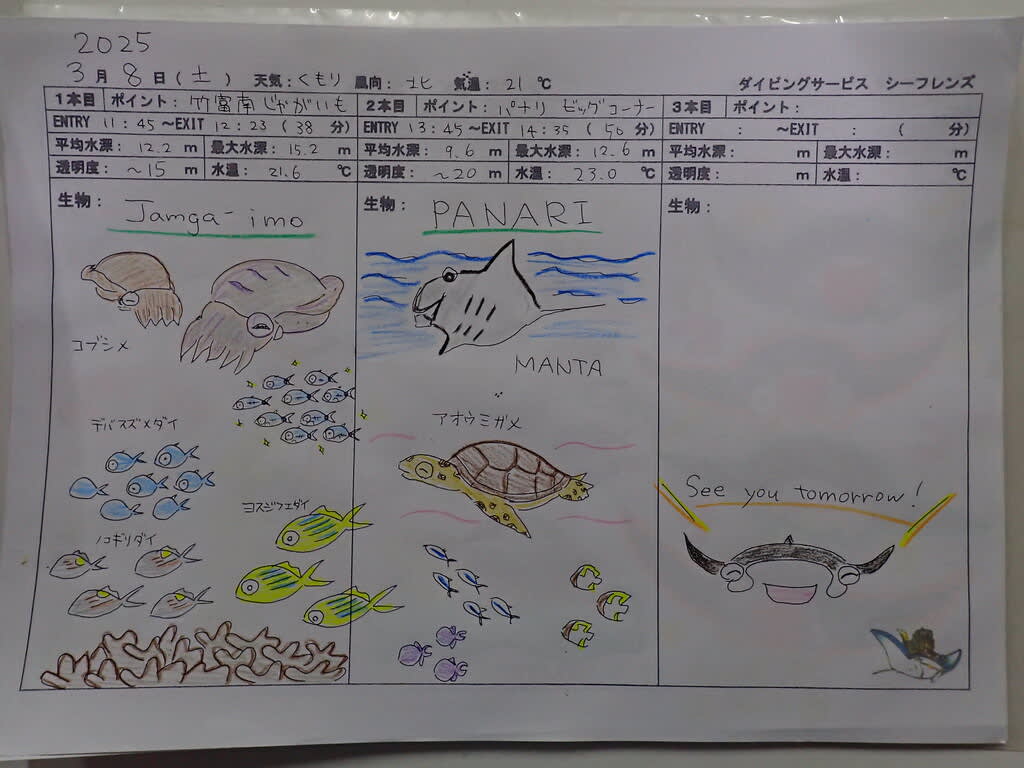 2025
3月 8日(土) 天気:くもり 風向:北 気温:21℃ ダイビングサービス シーフレンズ
1本目 ポイント:竹富南じゃがいも
ENTRY 11:45~EXIT 12:23(38 分)
平均水深: 12.2 m 最大水深: 15.2 m
透明度: ~15 m 水温: 21.6 ℃
生物: Jamga-imo
コブシメ
デバスズメダイ
ヨスジフエダイ
ノコギリダイ
2本目 ポイント:パナリ ビッグコーナー
ENTRY 13:45~EXIT 14:35(50 分)
平均水深: 9.6 m 最大水深: 12.6 m
透明度: ~20 m 水温: 23.0 ℃
生物: PANARI
MANTA
アオウミガメ
3本目 ポイント:
ENTRY : ~EXIT : ( 分)
平均水深: m 最大水深: m
透明度: m 水温: ℃
生物:
See you tomorrow!